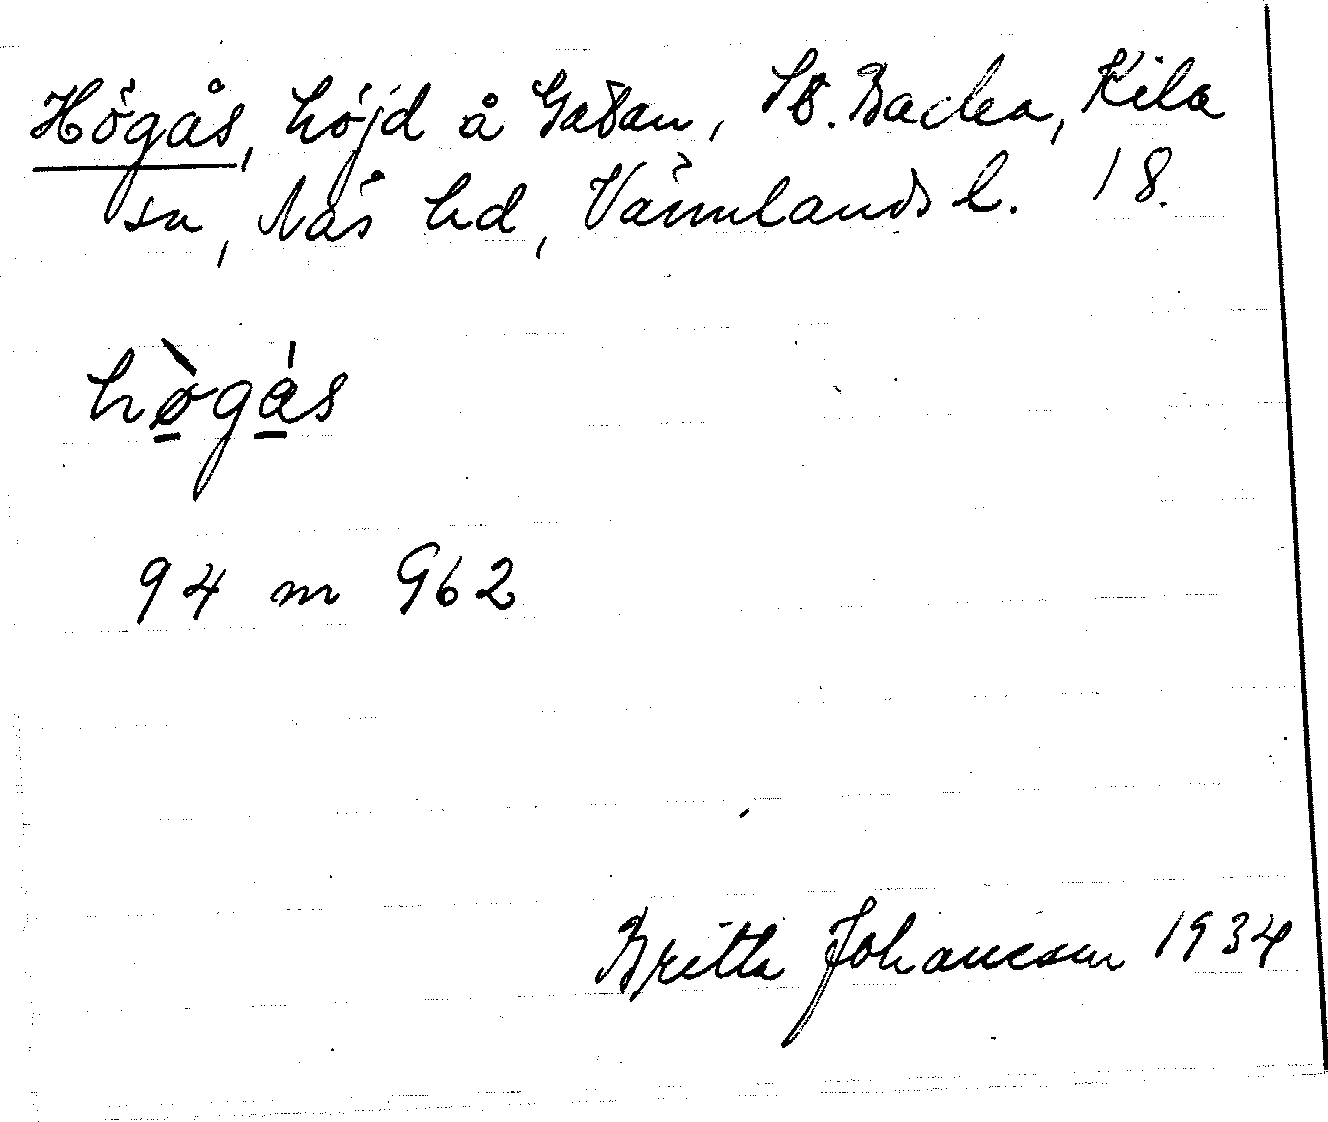 Högås, höjd å Gatan, St. Backa, Kila
sn, Näs hd, Värmlands l. 18.
hø̀gás
94 m G62
Britta Johansson 1934